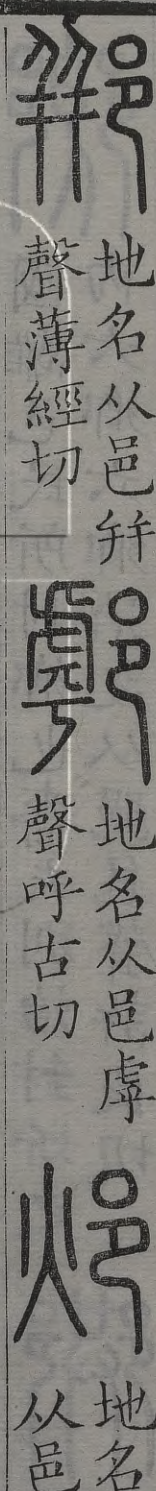 郱
地名从邑幷
聲薄經切
地名从邑虖
聲呼古切
邩
地名
从邑